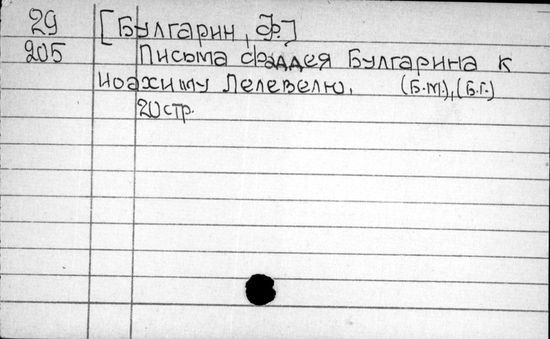 29 [Булгарин, Ф.]
205 Письма Фаддея Булгарина к
Иоахиму Лелевелю. (Б.м.), (Б.г.)
20 стр.